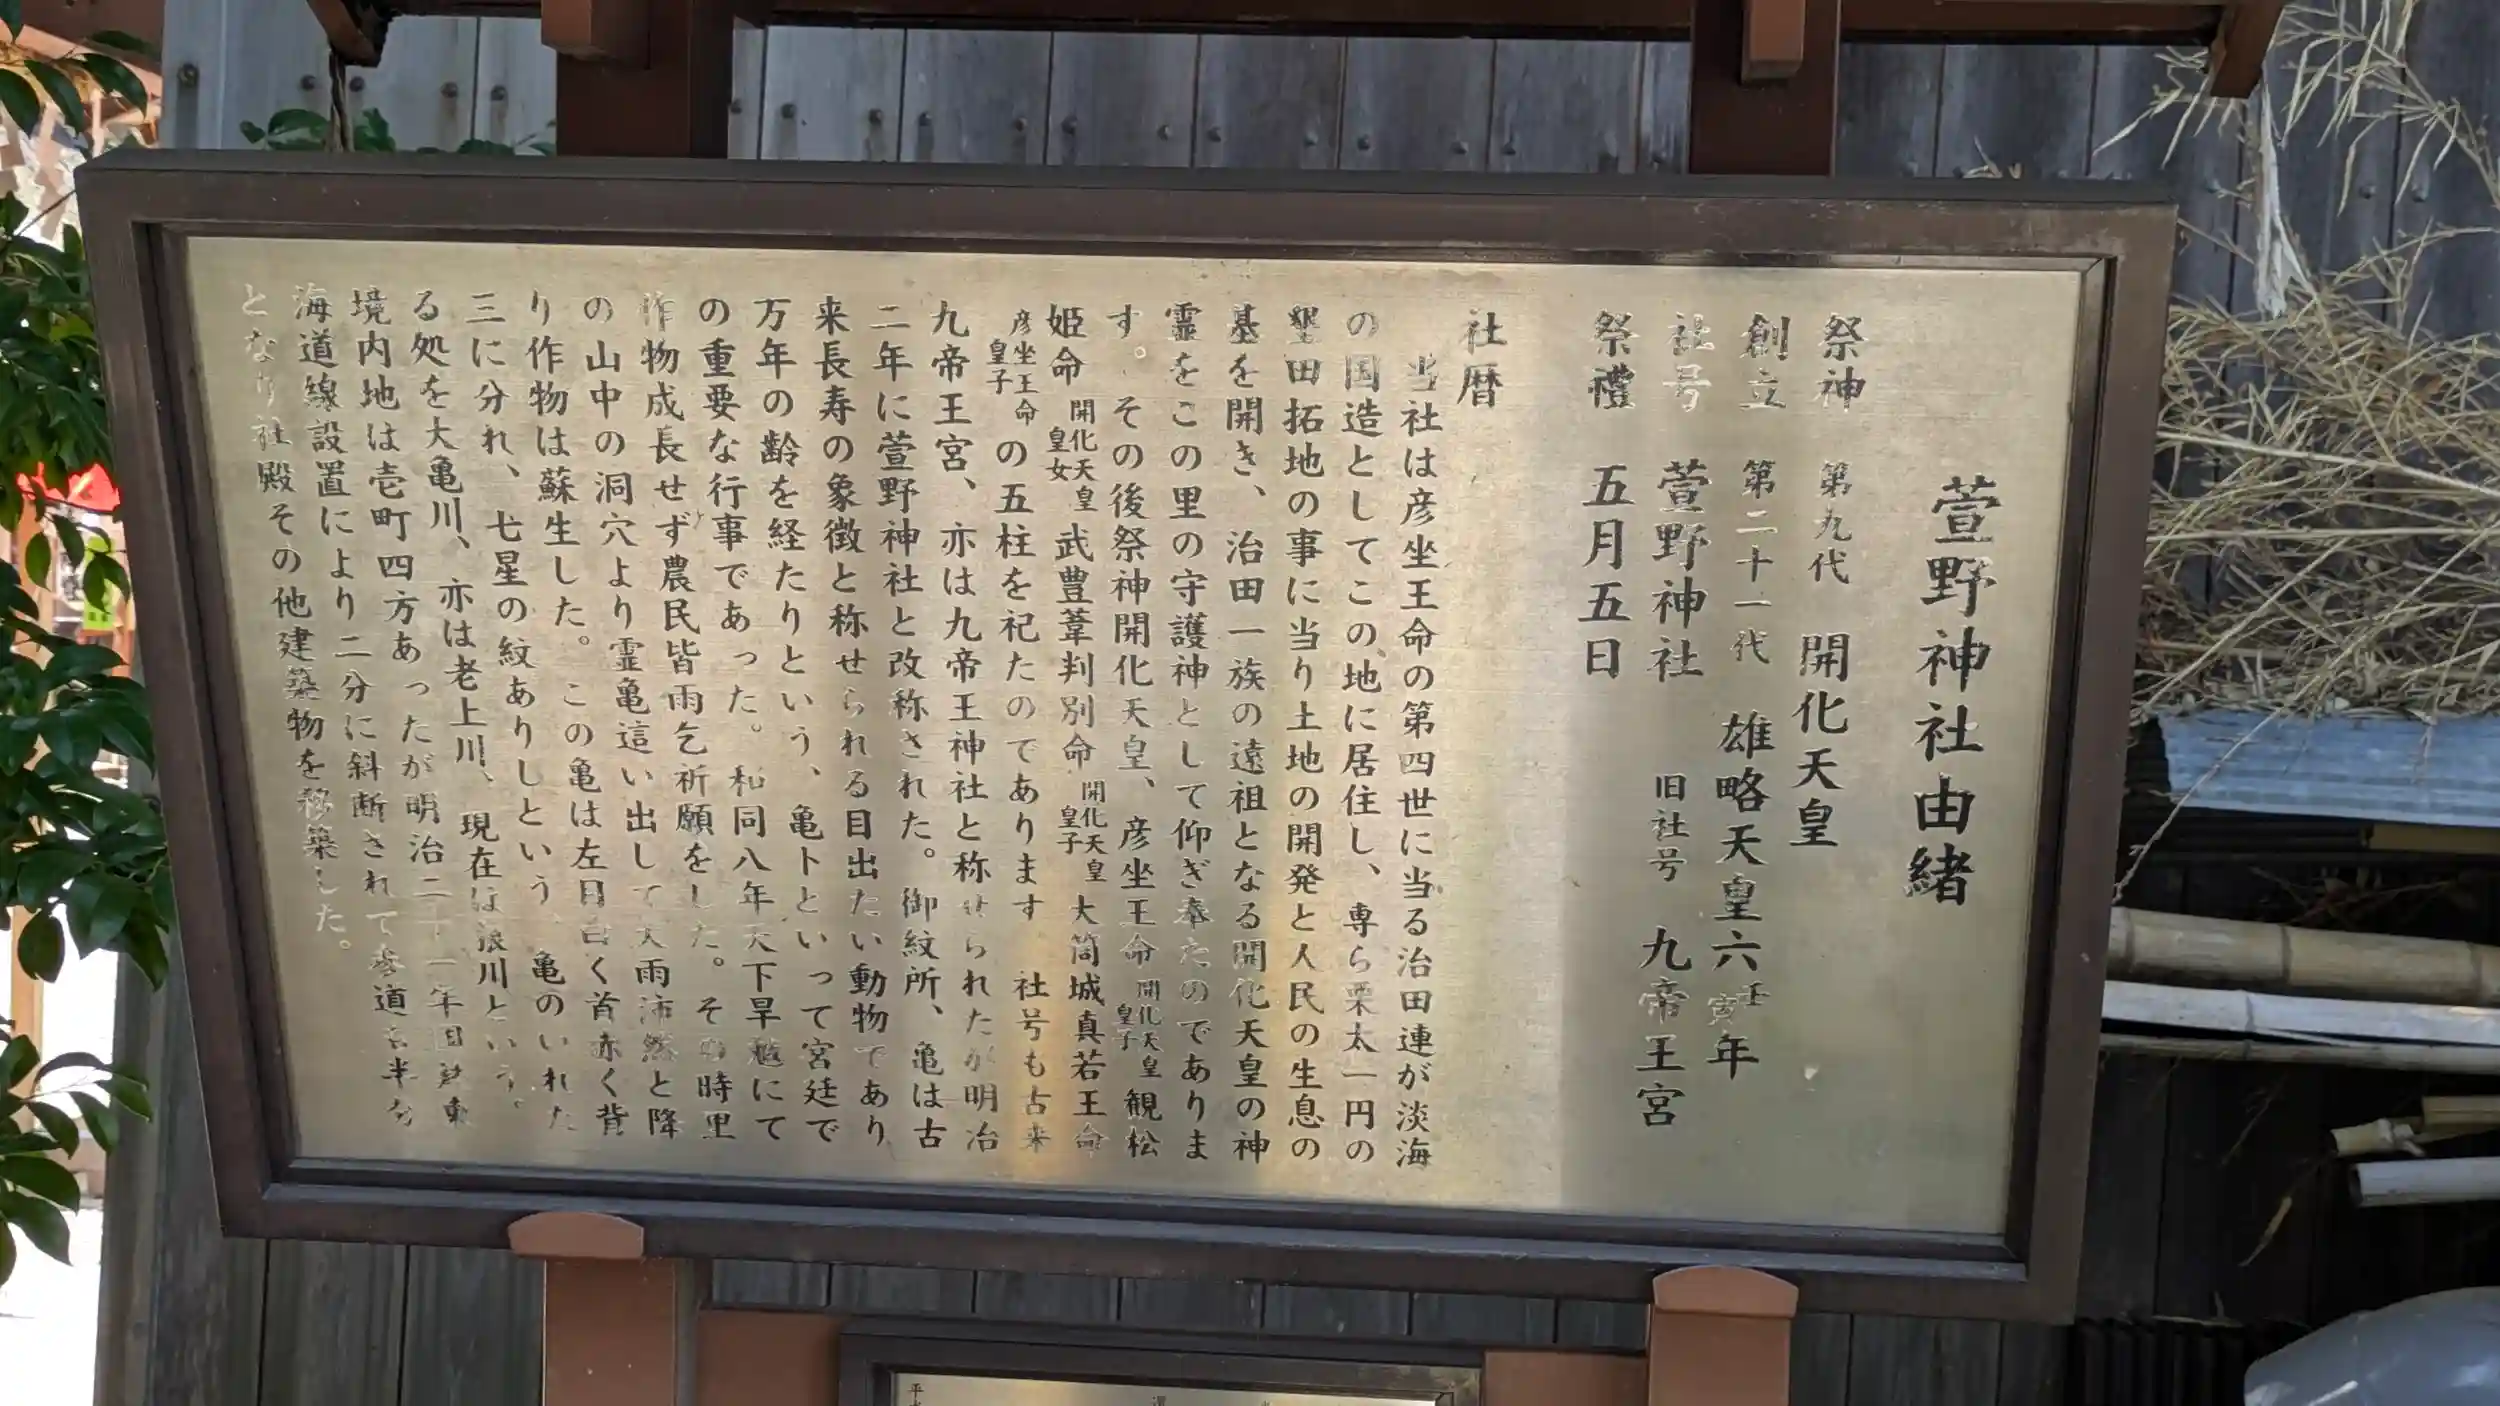 萱野神社由緒
祭神 第九代 開化天皇
創立 第二十一代 雄略天皇六壬寅年
社号 萱野神社 旧社号 九帝王宮
祭禮 五月五日
社暦
当社は彦坐王命の第四世に当る治田連が淡海
の国造としてこの地に居住し、専ら栗太一円の
墾田拓地の事に当り土地の開発と人民の生息の
基を開き、治田一族の遠祖となる開化天皇の神
霊をこの里の守護神として仰ぎ奉たのでありま
す。その後祭神開化天皇、彦坐王命開化天皇皇子観松
姫命開化天皇皇女武豊葦判別命開化天皇皇子大筒城真若王命
彦坐王命皇子の五柱を祀たのであります 社号も古来
九帝王宮、亦は九帝王神社と称せられたが明治
二年に萱野神社と改称された。御紋所、亀は古
来長寿の象徴と称せられる目出たい動物であり
万年の齢を経たりという、亀卜といって宮廷で
の重要な行事であった。和同八年天下旱魃にて
作物成長せず農民皆雨乞祈願をした。その時里
の山中の洞穴より霊亀這い出して天雨沛然と降
り作物は蘇生した。この亀は左目白く首赤く背
三に分れ、七星の紋ありしという 亀のいれた
る処を大亀川、亦は老上川、現在は狼川という。
境内地は壱町四方あったが明治二十一年国鉄東
海道線設置により二分に斜断されて参道も半分
となり社殿その他建築物を移築した。
平